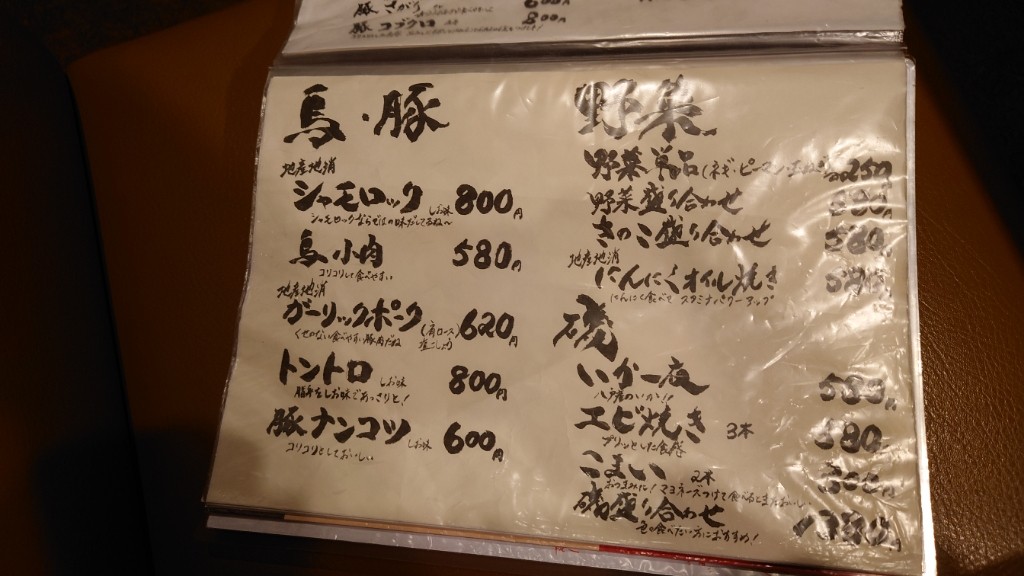 豚 さがり 600円
豚 コブクロ 800円
鳥・豚
地産地消
シャモロック しお味 800円
シャモロックならではの味だしてるね〜
鳥小肉 580円
コリコリして食べやすい
地産地消
ガーリックポーク (肩ロース) 塩こしょう 620円
くせのない食べやすい豚肉だね
トントロ しお味 800円
脂身をしお味であっさりと!
豚ナンコツ しお味 600円
コリコリとしておいしい
野菜
野菜単品(ネギ・ピーマン・玉ねぎ) 250
野菜盛り合わせ
きのこ盛り合わせ 580
地産地消
にんにくオイル焼き
にんにく食べて スタミナパワーアップ
磯
いか一夜 580円
八戸産のいか!!
エビ焼き 3本 680
プリッとした食感
こまい 2本
おつまみに! マヨネーズつけて食べるとまたおいしい
磯盛り合わせ
色々食べたい方におすすめ!